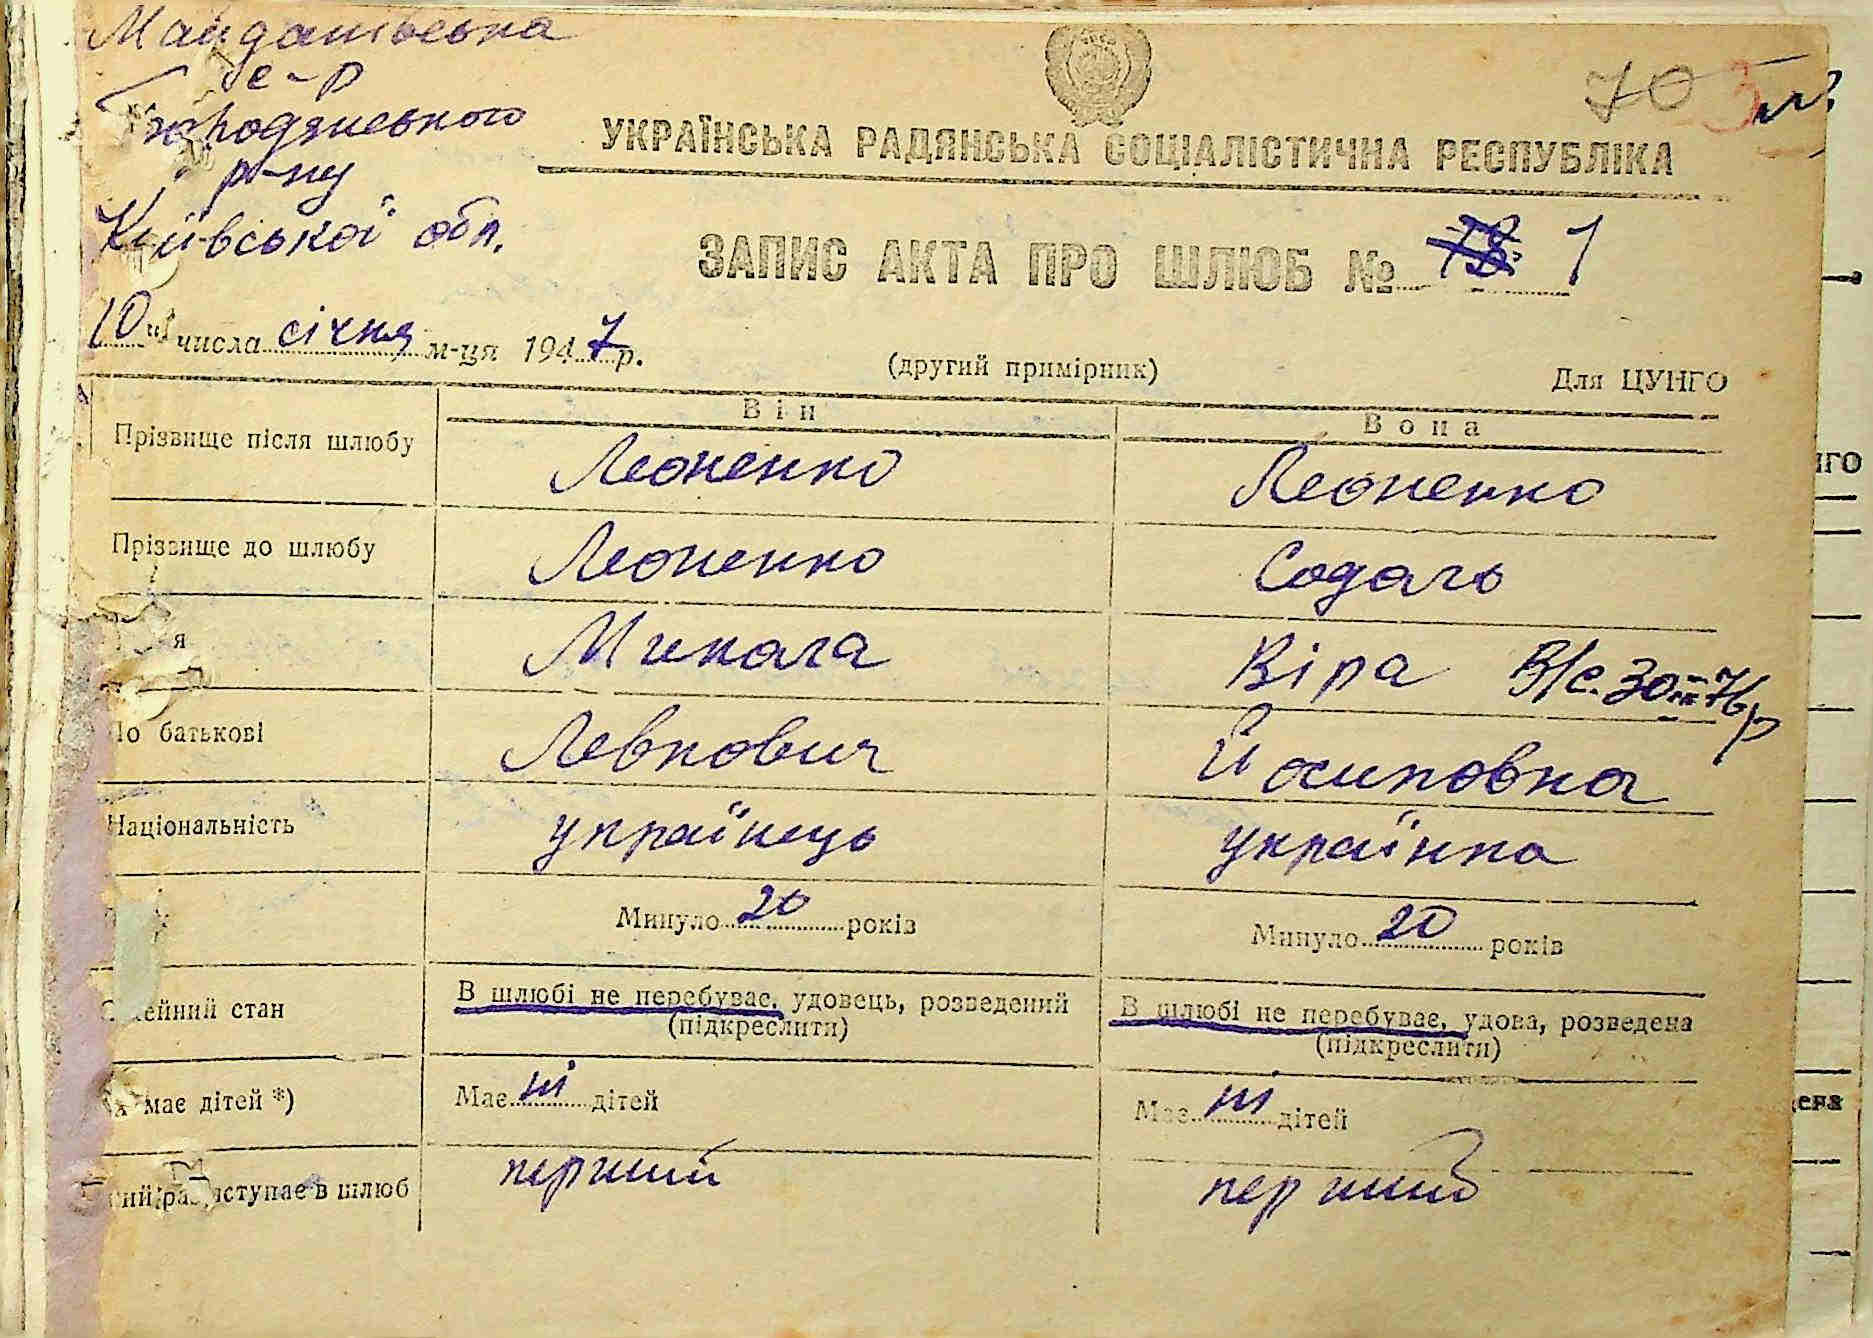 Майданівська
с-р
Бородянського
р-ну
Київської обл.
70
УКРАЇНСЬКА РАДЯНСЬКА СОЦІАЛІСТИЧНА РЕСПУБЛІКА
ЗАПИС АКТА ПРО ШЛЮБ № 1
10 " числа січня м-ця 1947 р.
(другий примірник)
Для ЦУНГО
Він
Вона
Прізвище після шлюбу Леоненко Леоненко
Прізвище до шлюбу Леоненко Содаль
я Микола Віра В/с. 30 III 76 р
По батькові Левкович Йосиповна
Національність українець українка
Минуло 20 років Минуло 20 років
ейний стан В шлюбі не перебуває, удовець, розведений В шлюбі не перебуває, удова, розведена
(підкреслити) (підкреслити)
має дітей *) Має ні дітей Має ні дітей
вступає в шлюб перший перший